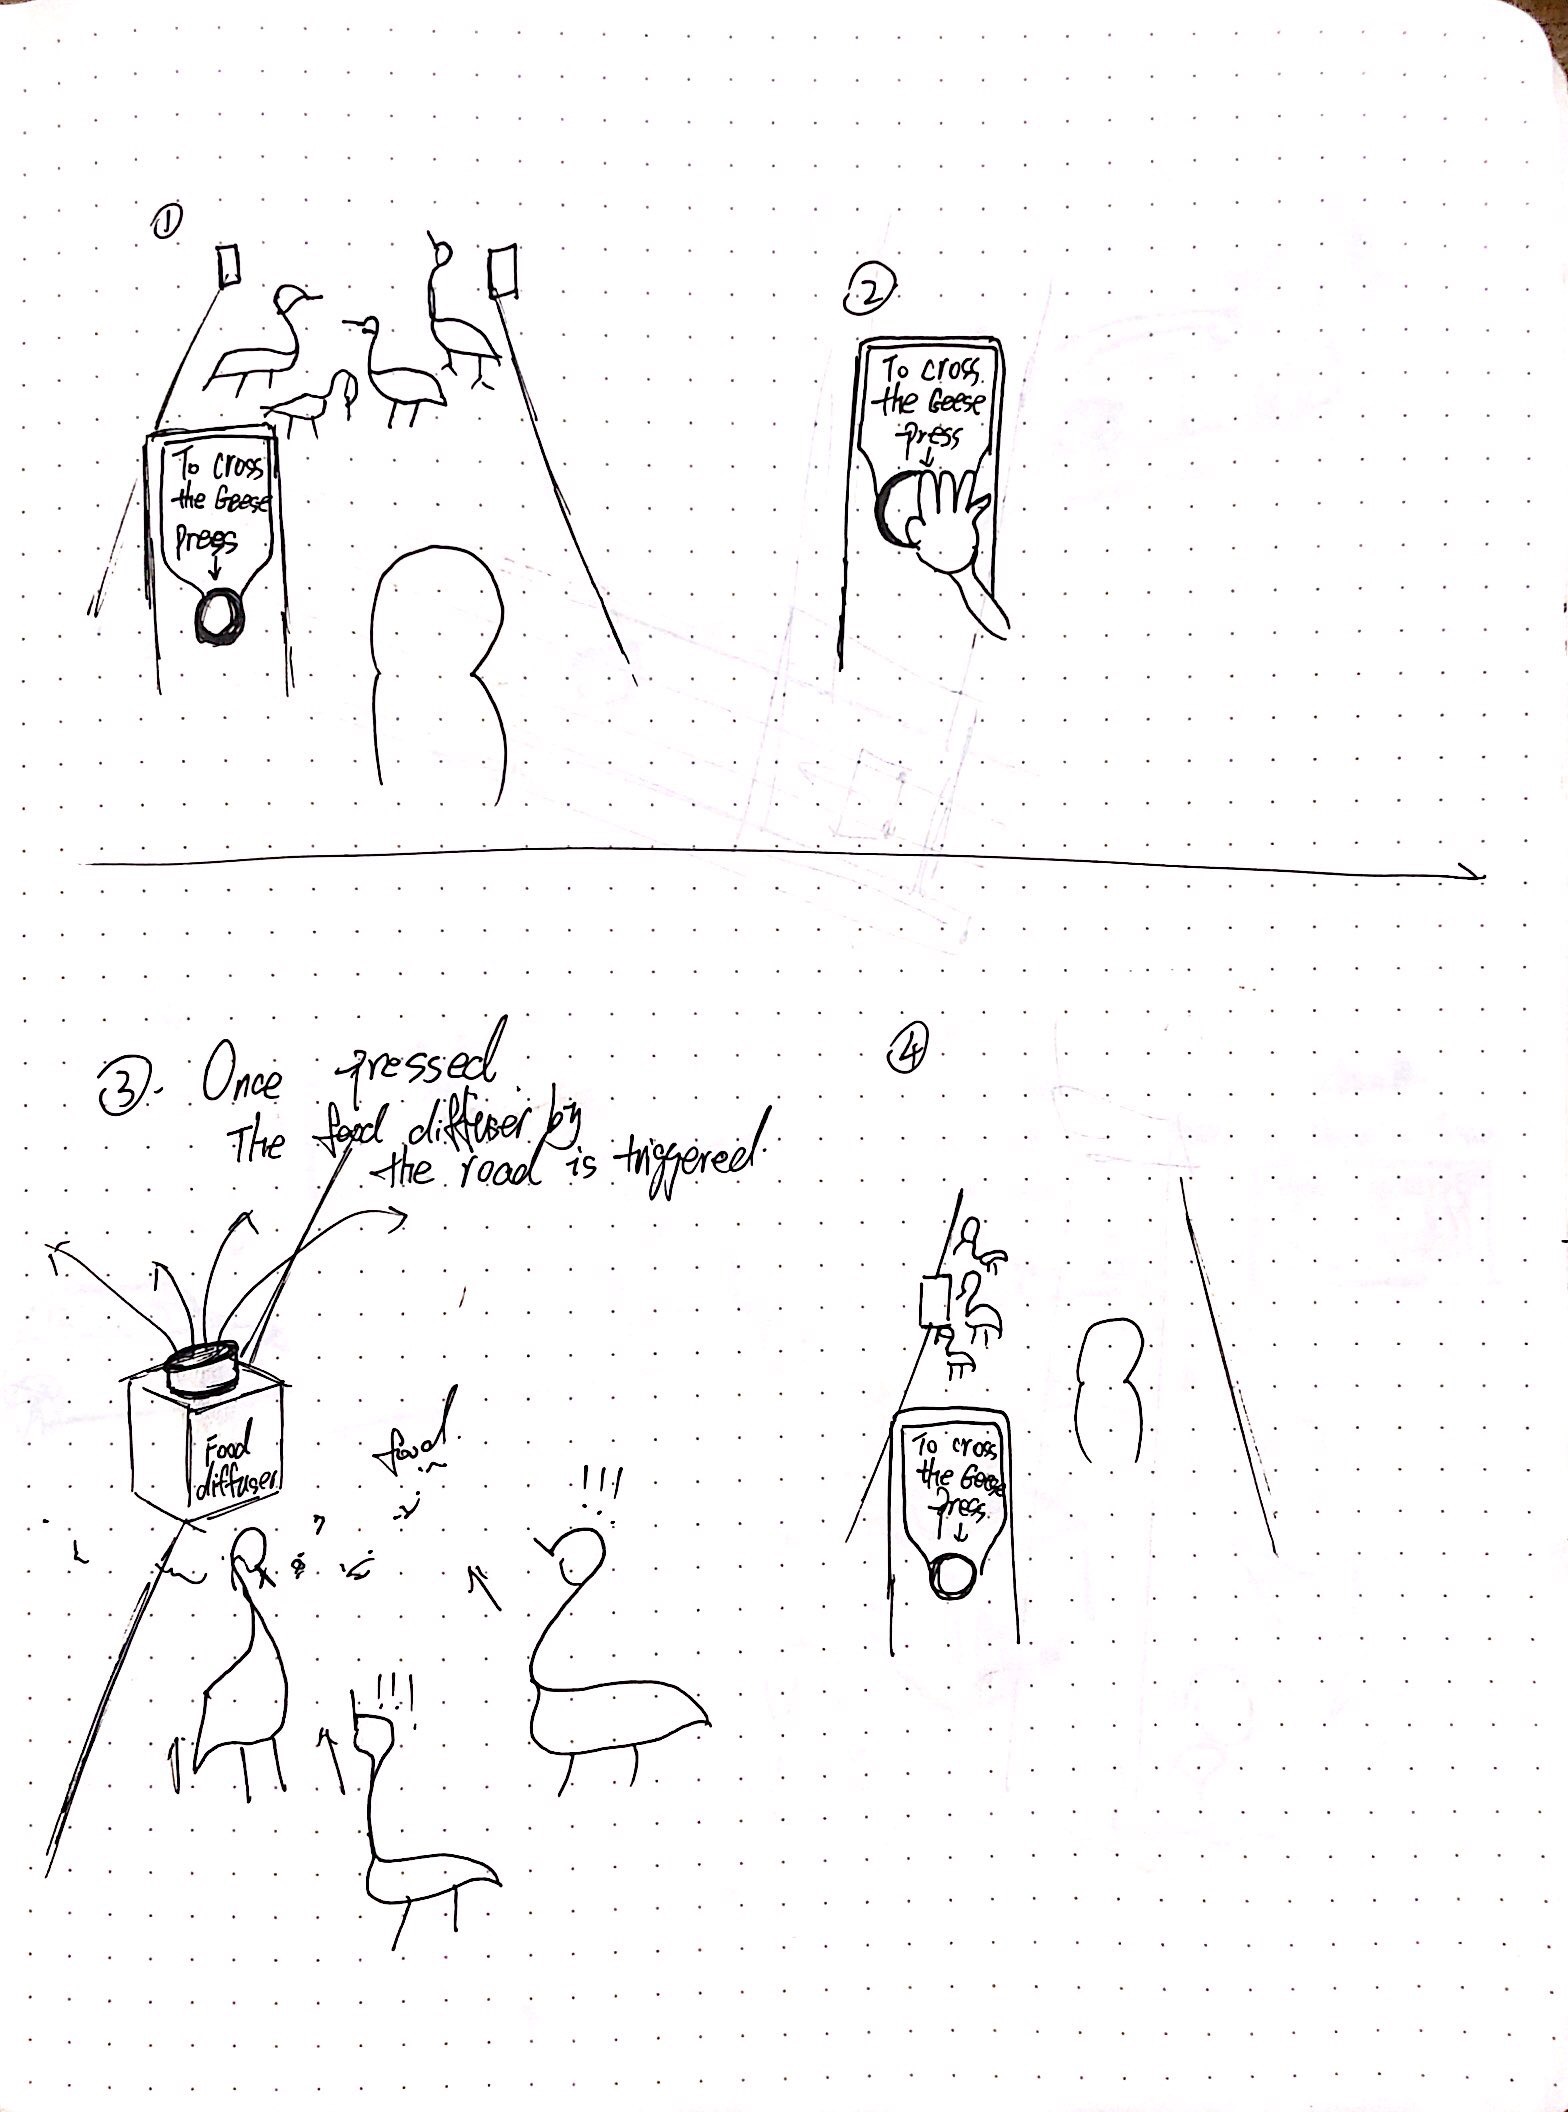 ①
To cross
the Geese
Press
②
To cross
the Geese
press
③. Once pressed
The food diffuser by
the road is triggered.
Food
diffuser
food
!!!
!!!
④
To cross
the Geese
Press